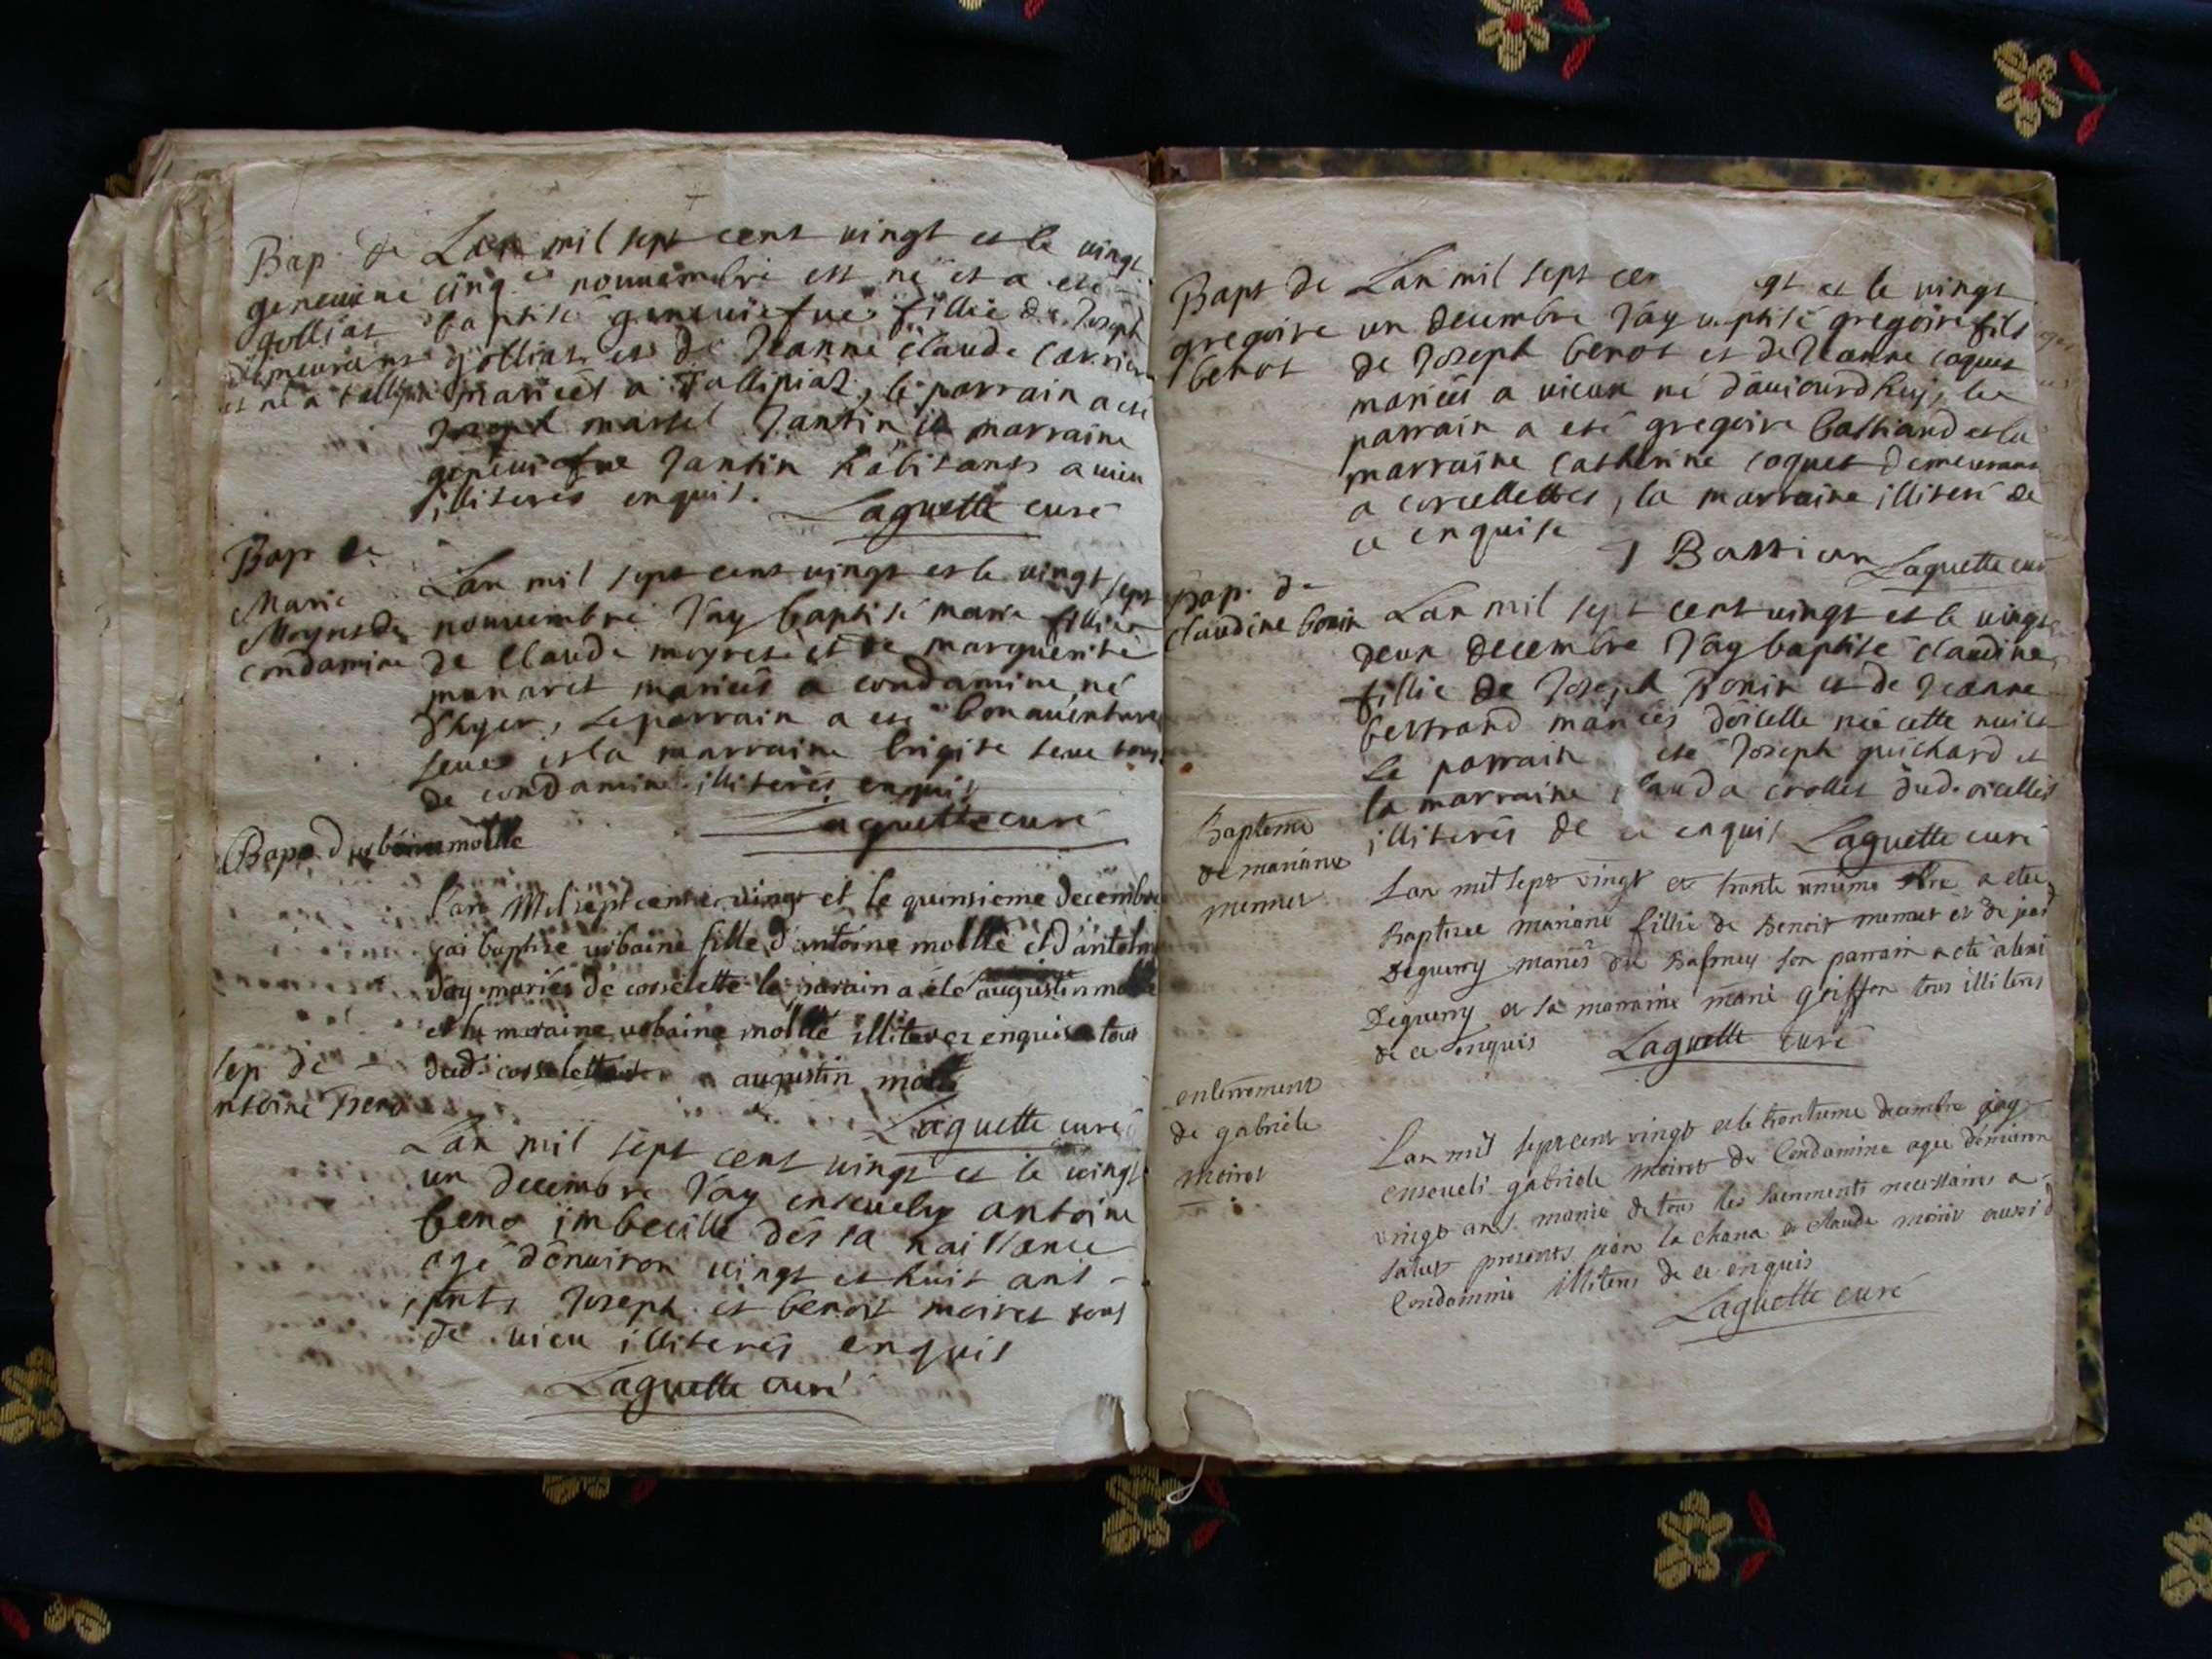 Bap. de
geneuiene
gollias
demeurant
et né a tallipia
Lan mil sept cent vingt et le vingt
cinq nouuembre est né et a eté
baptisé geneuiefue fillie de Joseph
gollias et de Jeanne Claude Carrier
mariées a Tallipiaz, le parrain a eté
Joseph massel Jantin la marraine
geneuiefue Jantin habitants a uieu
illiterés enquis.
Laguette curé
Bap. de
Marie
Moyret de
condamine
Lan mil sept cent vingt et le vingt sept
nouuembre J'ay baptisé marie fillie
de Claude moyret et de marguerite
munaret mariées a condamine né
d'hyer, le parrain a eté bonauenture
seue et la marraine brigite seue tous
de condamine illiterés enquis
Laguette curé
Bap. d'urbaine mollie
l'an Mil sept cent vingt et le quinsieme decembre
jai baptise urbaine fille d'antoine mollie et d'antelme
day mariés de corcelette le parain a été augustin mollie
et la maraine urbaine mollie illiterez enquis tous
dud. corcelette augustin mollie
Laguette curé
sep de
antoine Beno
Lan mil sept cent vingt et le vingt
un decembre J'ay enseuely antoine
beno imbecille dés sa naissance
agé d'enuiron vingt et huit ans
pnts Joseph et benoit moiret tous
de uieu illiterés enquis
Laguette curé
Bapt de
gregoire
benot
Lan mil sept cen gt et le vingt
un decembre J'ay baptisé gregoire fils
de Joseph benot et de Jeanne coquet
mariées a uieux né d'aujourd'huy, le
parrain a eté gregoire bassiand et la
marraine catherine coquet demeurant
a corcellettes, la marraine illiteré de
ce enquise
J Bassian Laguette curé
Bap. de
claudine bonin
Lan mil sept cent vingt et le vingt
deux decembre J'ay baptisé claudine
fillie de Joseph Bonin et de Jeanne
bertrand mariées d'oicelle née cette nuict
Le parrain eté Joseph guichard et
la marraine clauda crollet dud. oicelles
illiterés de ce enquis Laguette curé
Baptême
de mariane
mermet
Lan mil sept vingt et trante unieme xbre a eté
Baptisee mariane fillie de Benoit mermet et de jean
Deguerry mariés de Bassieu son parrain a eté alexi
Deguerry et sa marraine marie goiffon tous illiterés
de ce enquis Laguette curé
enterrement
de gabriele
moiret
Lan mil sept cent vingt et le trantieme decembre j'ay
enseueli gabriele moiret de Condamine agee d'enuiron
vingt ans munie de tous les sacrements necessaires a
salut presents jean la chana et claude moiret aussi d
Condamine illiterés de ce enquis
Laguette curé